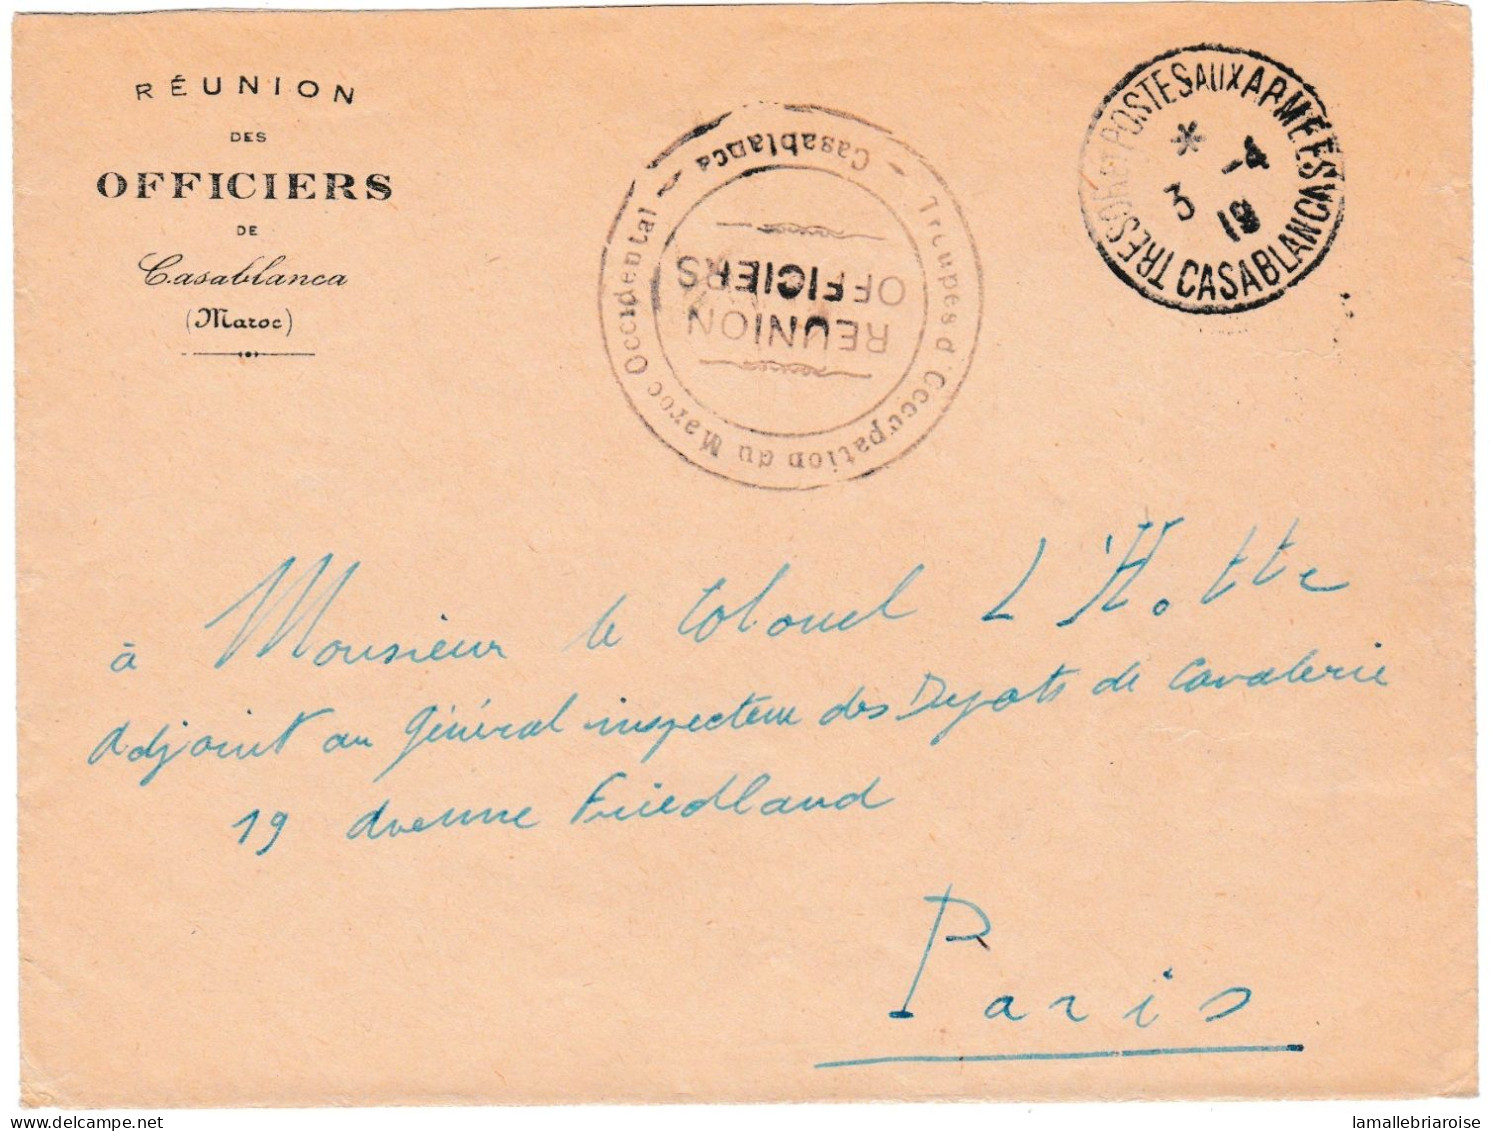 RÉUNION
DES
OFFICIERS
DE
Casablanca
(Maroc)
Troupes d'Occupation du Maroc Occidental
— Casablanca —
REUNION
OFFICIERS
TRESOR ET POSTES AUX ARMEES
*
3 -4
19
CASABLANCA
à Monsieur le Colonel L'Hotte
Adjoint au Général inspecteur des Depots de Cavalerie
19 Avenue Friedland
Paris
delcampe.net
lamallebriaroise